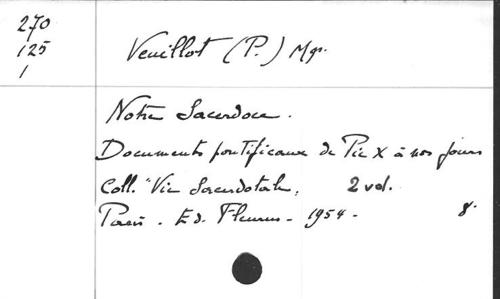 270
125
1
Veuillot (P.) Mgr.
Notre Sacerdoce.
Documents pontificaux de Pie X à nos jours
Coll. "Vie Sacerdotale, 2 vol.
Paris. Ed. Fleurus - 1954 - 8°